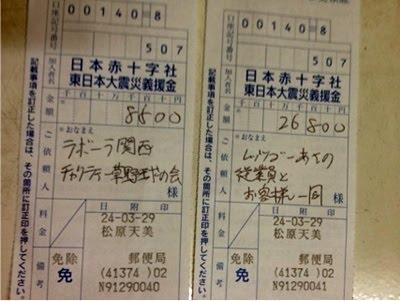 00140 8
507
日本赤十字社
東日本大震災義援金
千百十万千百十円
8500
※おなまえ
ラボーラ関西
チャリティー草野球の会
様
日附印
24-03-29
松原天美
郵便局
(41374)02
N91290040
口座記号番号
加入者名
金額
ご依頼人
料金
備考
免除
免
記載事項を訂正した場合は、その箇所に訂正印を押してください。
00140 8
507
日本赤十字社
東日本大震災義援金
千百十万千百十円
26800
※おなまえ
従業員と
お客様一同
様
日附印
24-03-29
松原天美
郵便局
(41374)02
N91290041
口座記号番号
加入者名
金額
ご依頼人
料金
備考
免除
免
記載事項を訂正した場合は、その箇所に訂正印を押してください。